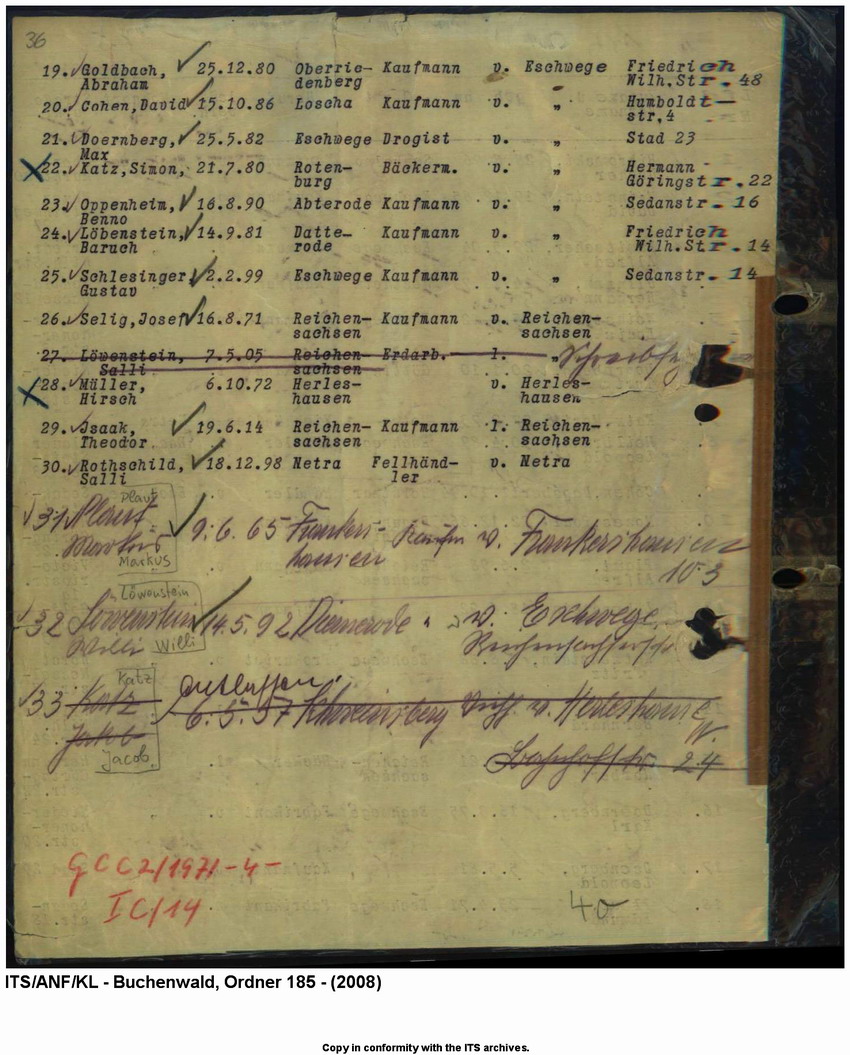 36
19. Goldbach, 25.12.80 Oberrie- Kaufmann v. Eschwege Friedrich
Abraham denberg Wilh.Str. 48
20. Cohen, David 15.10.86 Loscha Kaufmann v. „ Humboldt-
str,4
21. Doernberg, 25.5.82 Eschwege Drogist v. „ Stad 23
Max
22. Katz,Simon, 21.7.80 Roten- Bäckerm. v. „ Hermann
burg Göringstr.22
23. Oppenheim, 16.8.90 Abterode Kaufmann v. „ Sedanstr. 16
Benno
24. Löbenstein, 14.9.81 Datte- Kaufmann v. „ Friedrich
Baruch rode Wilh.Str.14
25. Schlesinger, 2.2.99 Eschwege Kaufmann v. „ Sedanstr. 14
Gustav
26. Selig,Josef 16.8.71 Reichen- Kaufmann v. Reichen-
sachsen sachsen
27. Löwenstein, 7.5.05 Reichen- Erdarb. l. „
Salli sachsen
28. Müller, 6.10.72 Herles- v. Herles-
Hirsch hausen hausen
29. Jsaak, 19.6.14 Reichen- Kaufmann l. Reichen-
Theodor sachsen sachsen
30. Rothschild, 18.12.98 Netra Fellhänd- v. Netra
Salli ler
Plaut
31 Plaut 9.6.65 Frankers- Kaufm v. Frankershausen
Markus hausen 103
Markus
Löwenstein
32 Löwenstein 14.5.92 Diemerode " v. Eschwege
Willi Willi
Katz entlassen
33 Katz 6.5.57 Schweinsberg v. Herleshausen
Jakob
Jacob Bahnhofstr 24
GCC2/1971-4-
IC/14
40
ITS/ANF/KL - Buchenwald, Ordner 185 - (2008)
Copy in conformity with the ITS archives.